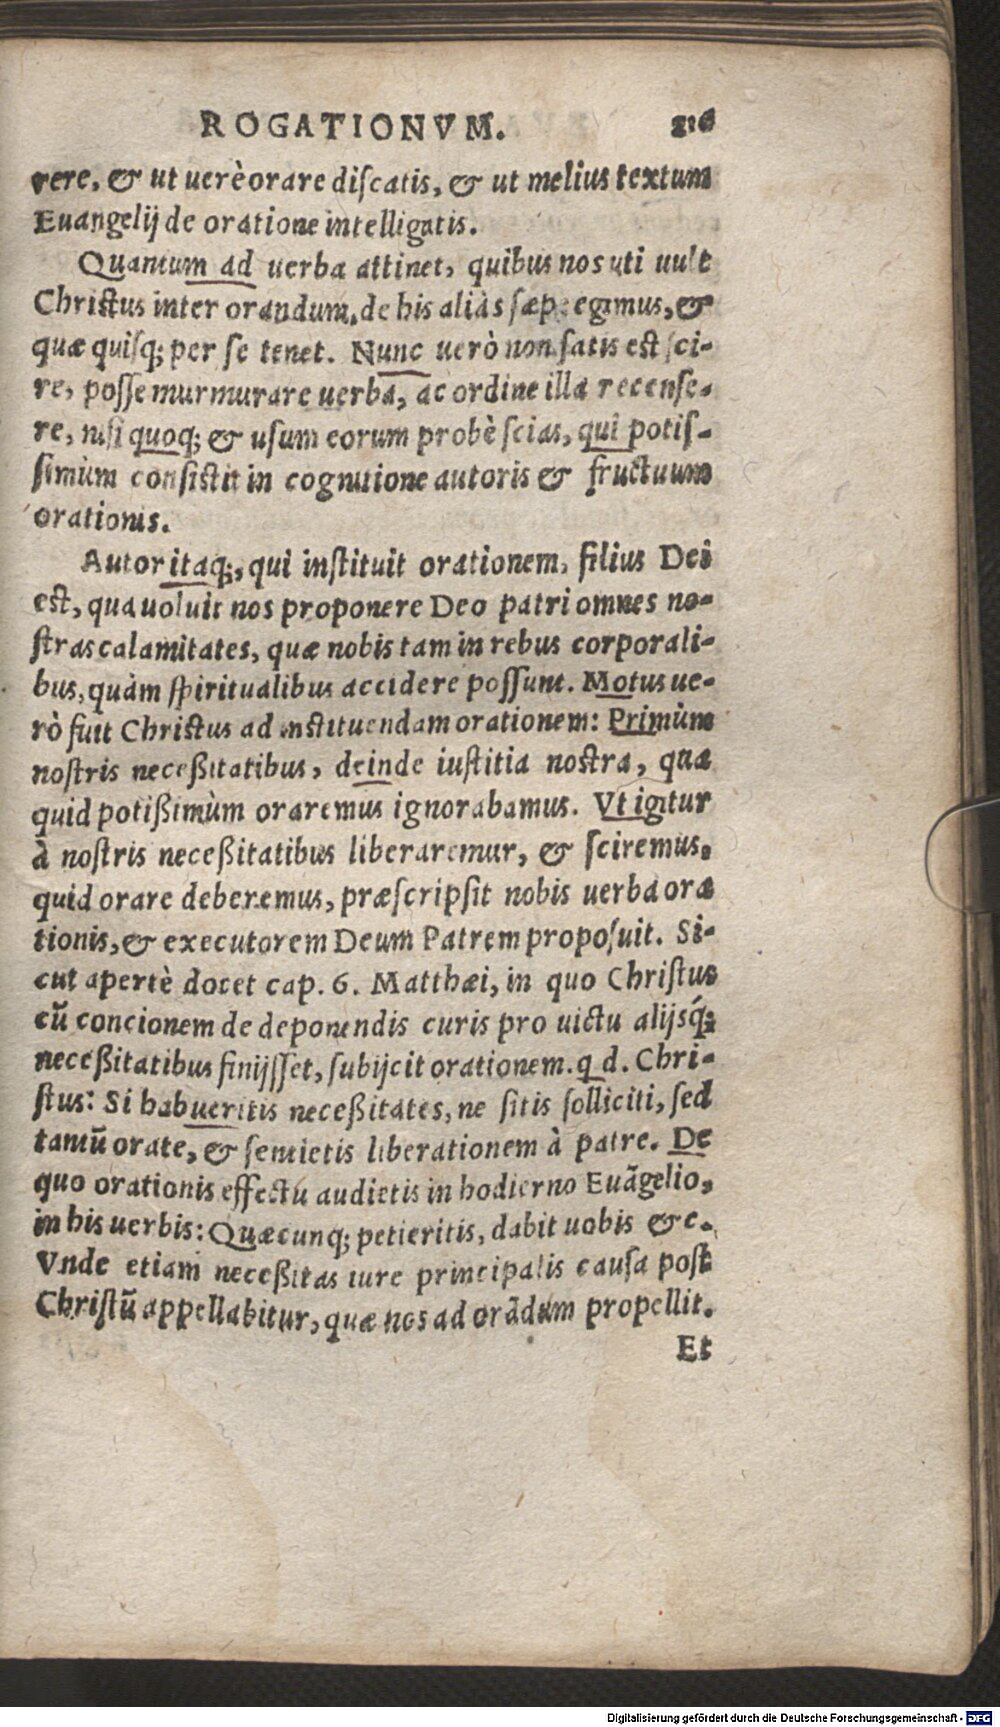 ROGATIONVM. 216
rere, & ut uerè orare diſcatis, & ut melius textum
Euangelij de oratione intelligatis.
Quantum ad uerba attinet, quibus nos uti uult
Chriſtus inter orandum, de his aliàs ſæpe egimus, &
quæ quiſq; per ſe tenet. Nunc uerò non ſatis eſt ſci-
re, poſſe murmurare uerba, ac ordine illa recenſe-
re, niſi quoq; & uſum eorum probè ſcias, qui potiſ-
ſimùm conſiſtit in cognitione autoris & fructuum
orationis.
Autor itaq;, qui inſtituit orationem, filius Dei
eſt, qua uoluit nos proponere Deo patri omnes no-
ſtras calamitates, quæ nobis tam in rebus corporali-
bus, quàm ſpiritualibus accidere poſſunt. Motus ue-
rò fuit Chriſtus ad inſtituendam orationem: Primùm
noſtris neceßitatibus, deinde iuſtitia noſtra, quæ
quid potißimùm oraremus ignorabamus. Vt igitur
à noſtris neceßitatibus liberaremur, & ſciremus,
quid orare deberemus, præſcripſit nobis uerba ora
tionis, & executorem Deum Patrem propoſuit. Si-
cut apertè docet cap. 6. Matthæi, in quo Chriſtus
cũ concionem de deponendis curis pro uictu alijsq́;
neceßitatibus finijſſet, ſubijcit orationem. q d. Chri-
ſtus: Si habueritis neceßitates, ne ſitis ſolliciti, ſed
tantũ orate, & ſentietis liberationem à patre. De
quo orationis effectu audietis in hodierno Euãgelio,
in his uerbis: Quæcunq; petieritis, dabit uobis &c.
Vnde etiam neceßitas iure principalis cauſa poſt
Chriſtũ appellabitur, quæ nos ad orãdum propellit.
Et
Digitalisierung gefördert durch die Deutsche Forschungsgemeinschaft - DFG